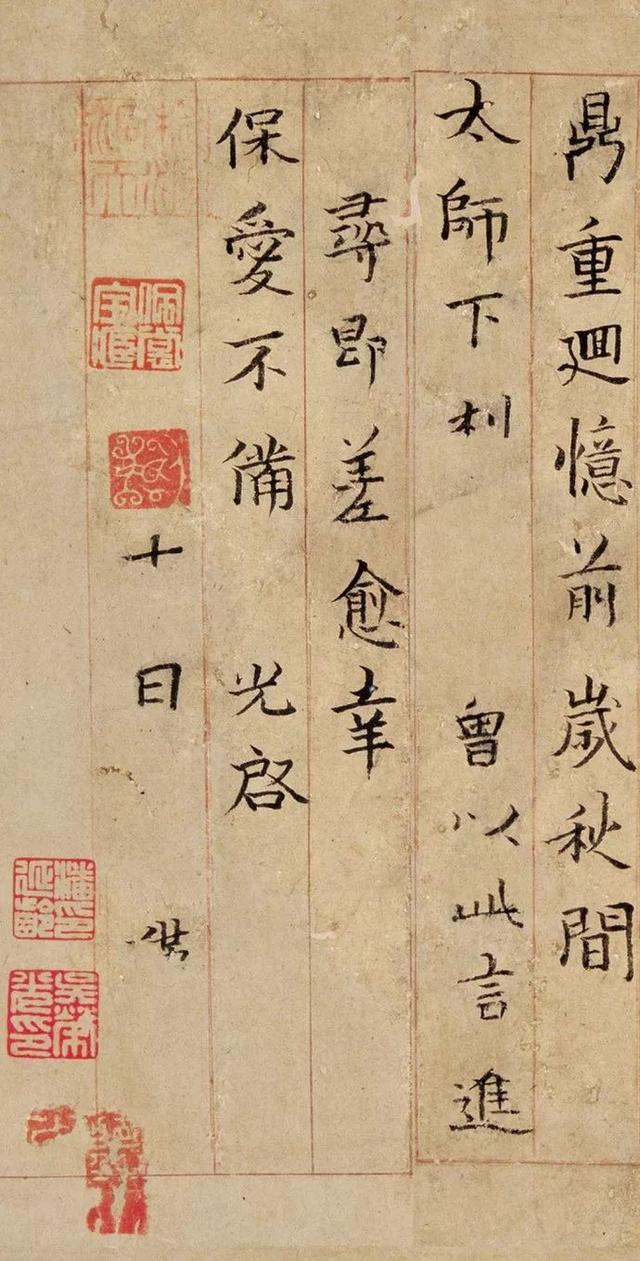 鼎重廻憶前歲秋間
太師下利 曾以此言進
尋即差愈幸
保愛不備 光啓
十日